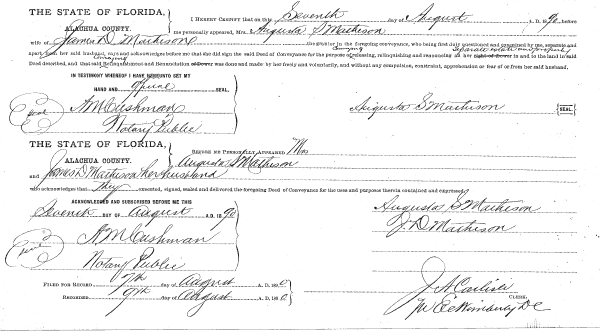 THE STATE OF FLORIDA,
ALACHUA COUNTY.
I HEREBY CERTIFY that on this Seventh day of August A. D. 1890 before
me personally appeared, Mrs. Augusta S Matheson
wife of James D Matheson the grantor in the foregoing conveyance, who being first duly questioned and examined by me, separate and
apart from her said husband, says and acknowledges before me that she did sign the said Deed of Conveyance for the purpose of releasing, relinquishing and renouncing all her right of dower in and to the land in said
Deed described, and that said Relinquishment and Renunciation of Dower was done and made by her freely and voluntarily, and without any compulsion, constraint, apprehension or fear of or from her said husband.
IN TESTIMONY WHEREOF I HAVE HEREUNTO SET MY
HAND AND official SEAL.
seal
H M Cushman
Notary Public
Augusta S Matheson SEAL
THE STATE OF FLORIDA,
ALACHUA COUNTY.
BEFORE ME PERSONALLY APPEARED Mrs
Augusta S Matheson
and James D Matheson her husband
who acknowledges that they executed, signed, sealed and delivered the foregoing Deed of Conveyance for the uses and purposes therein contained and expressed.
ACKNOWLEDGED AND SUBSCRIBED BEFORE ME THIS
Seventh DAY OF August A. D. 1890
seal
H M Cushman
Notary Public
Augusta S Matheson
J. D Matheson
FILED FOR RECORD 7th day of August A. D. 1890
RECORDED 9th day of August A. D. 1890
J A Carlisle
CLERK.
D C